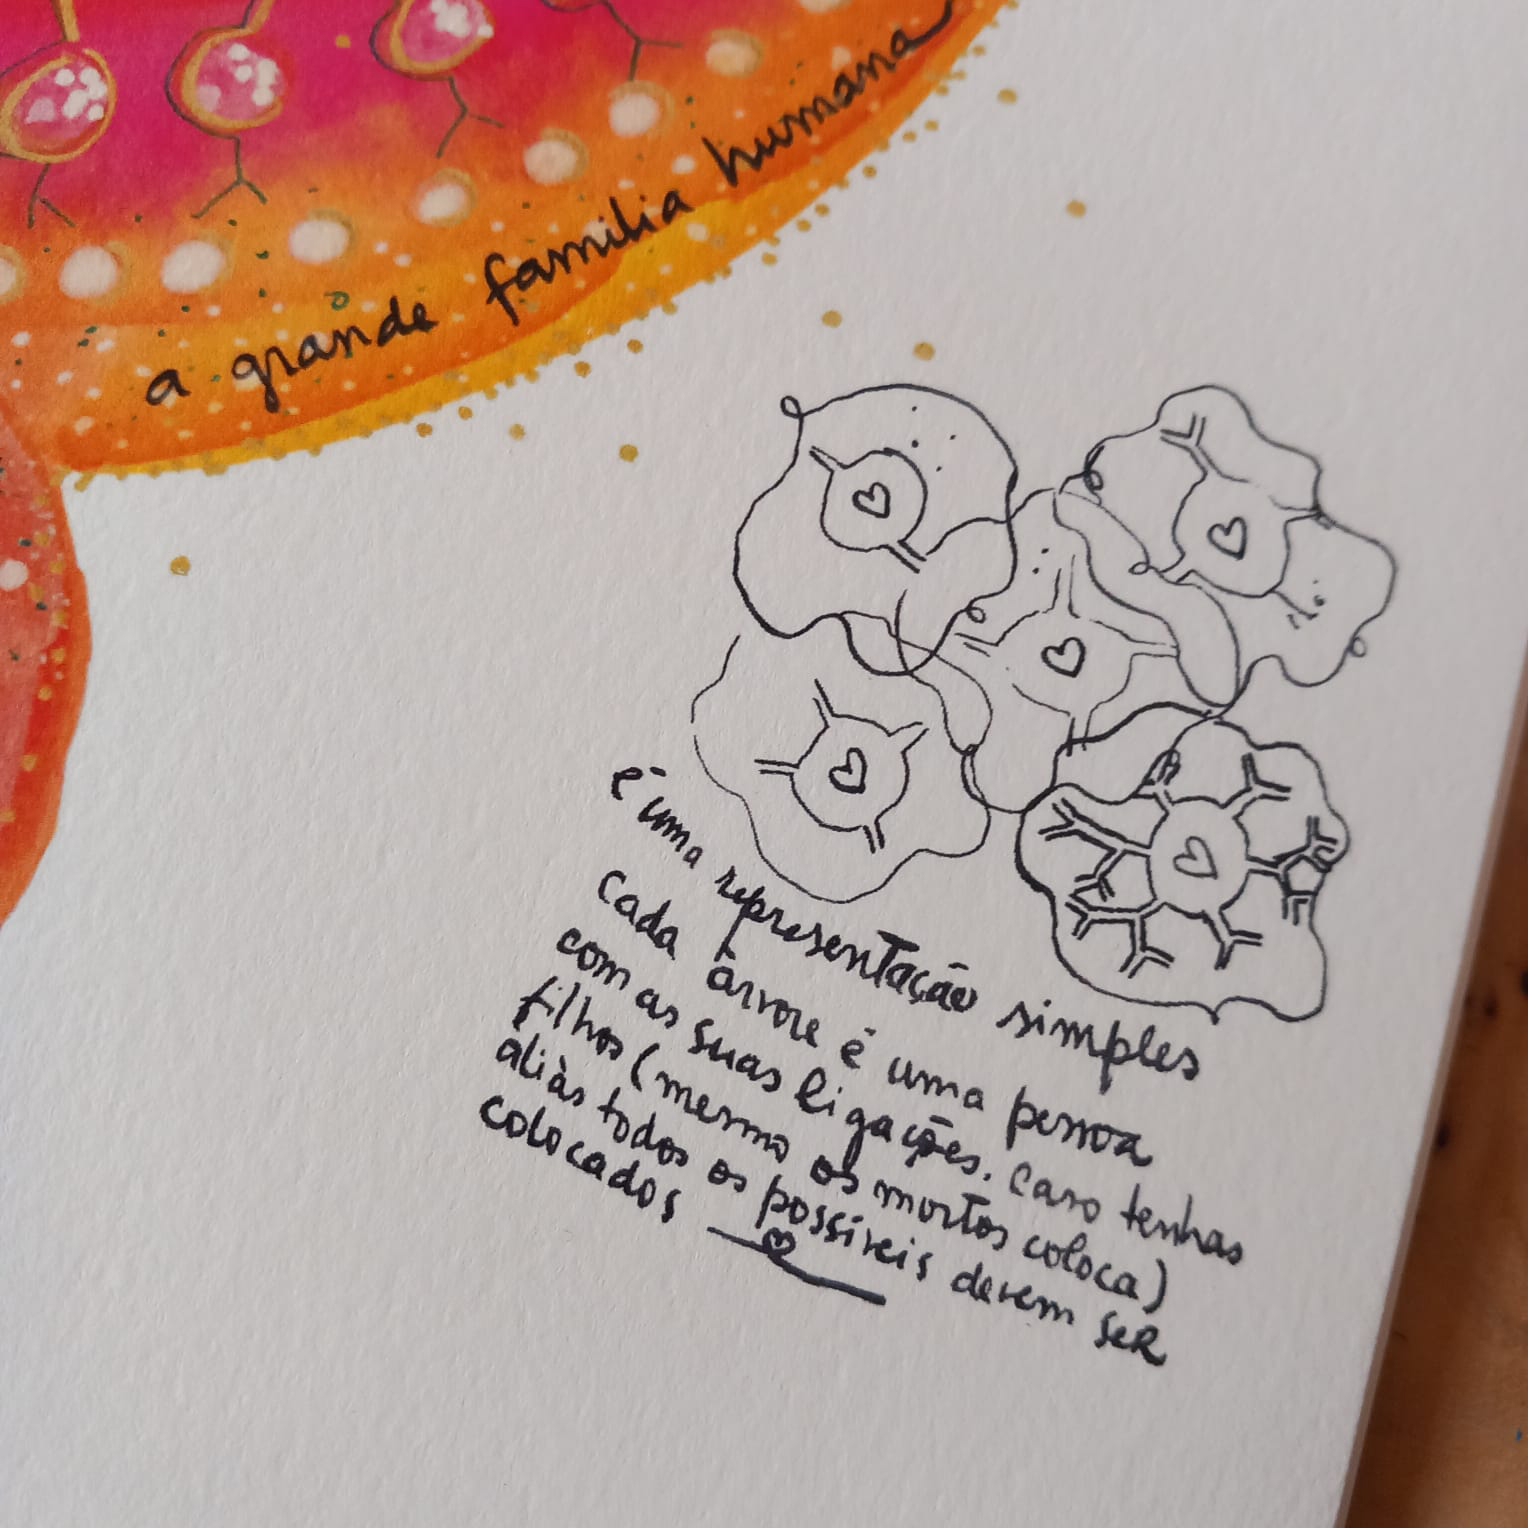 a grande familia humana
é uma representação simples
cada árvore é uma pessoa
com as suas ligações. Caso tenhas
filhos (mesmo os mortos coloca)
aliàs todos os possíveis devem ser
colocados